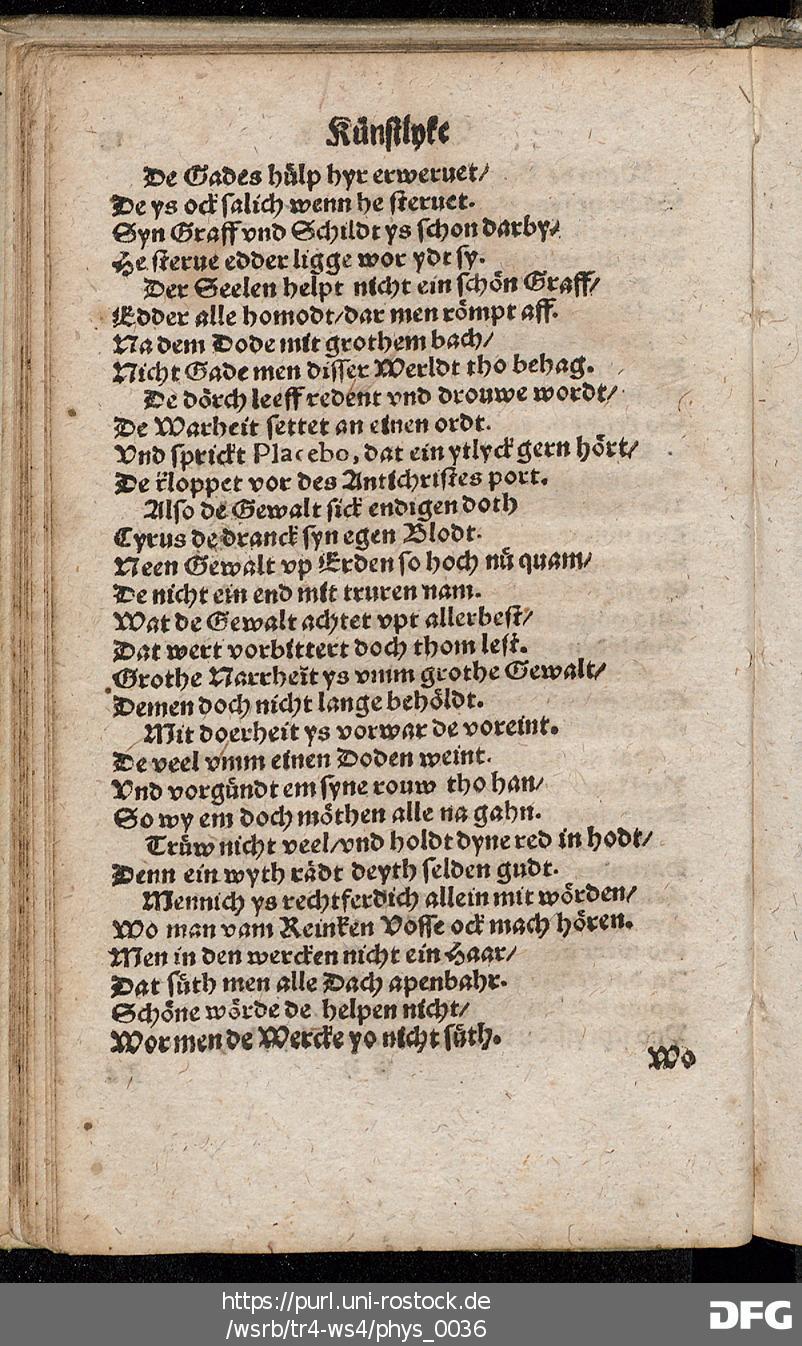 Künstlyke
De Gades hülp hyr erweruet/
De ys ock salich wenn he steruet.
Syn Graff vnd Schildt ys schon darby/
He sterue edder ligge wor ydt sy.
Der Seelen helpt nicht ein schön Graff/
Edder alle homodt/dar men römpt aff.
Na dem Dode mit grothem bach/
Nicht Gade men disser Werldt tho behag.
De dörch leeff redent vnd drouwe wordt/
De Warheit settet an einen ordt.
Vnd sprickt Placebo, dat ein ytlyck gern hört/
De kloppet vor des Antichristes port.
Also de Gewalt sick endigen doth
Cyrus de dranck syn egen Blodt.
Neen Gewalt vp Erden so hoch nü quam/
De nicht ein end mit truren nam.
Wat de Gewalt achtet vpt allerbest/
Dat wert vorbittert doch thom lest.
Grothe Narrheit ys vmm grothe Gewalt/
Demen doch nicht lange behöldt.
Mit doerheit ys vorwar de voreint.
De veel vmm einen Doden weint.
Vnd vorgündt em syne rouw tho han/
So wy em doch möthen alle na gahn.
Trüw nicht veel/vnd holdt dyne red in hodt/
Denn ein wyth rädt deyth selden gudt.
Mennich ys rechtferdich allein mit wörden/
Wo man vam Reinken Vosse ock mach hören.
Men in den wercken nicht ein Haar/
Dat süth men alle Dach apenbahr.
Schöne wörde de helpen nicht/
Wor men de Wercke yo nicht süth.
Wo
https://purl.uni-rostock.de
/wsrb/tr4-ws4/phys_0036
DFG